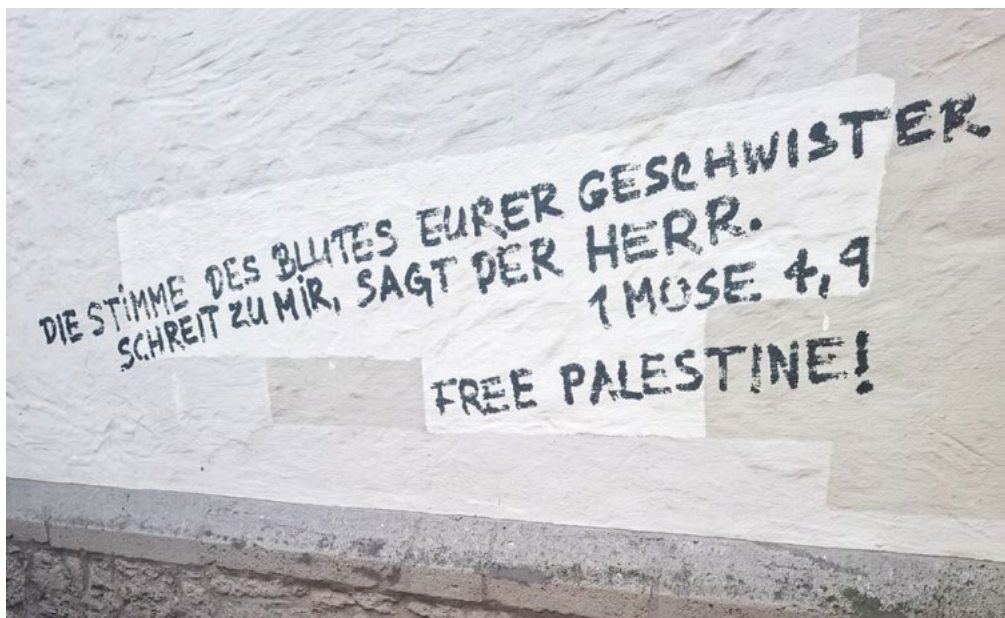 DIE STIMME DES BLUTES EURER GESCHWISTER
SCHREIT ZU MIR, SAGT DER HERR.
1 MOSE 4,9
FREE PALESTINE!